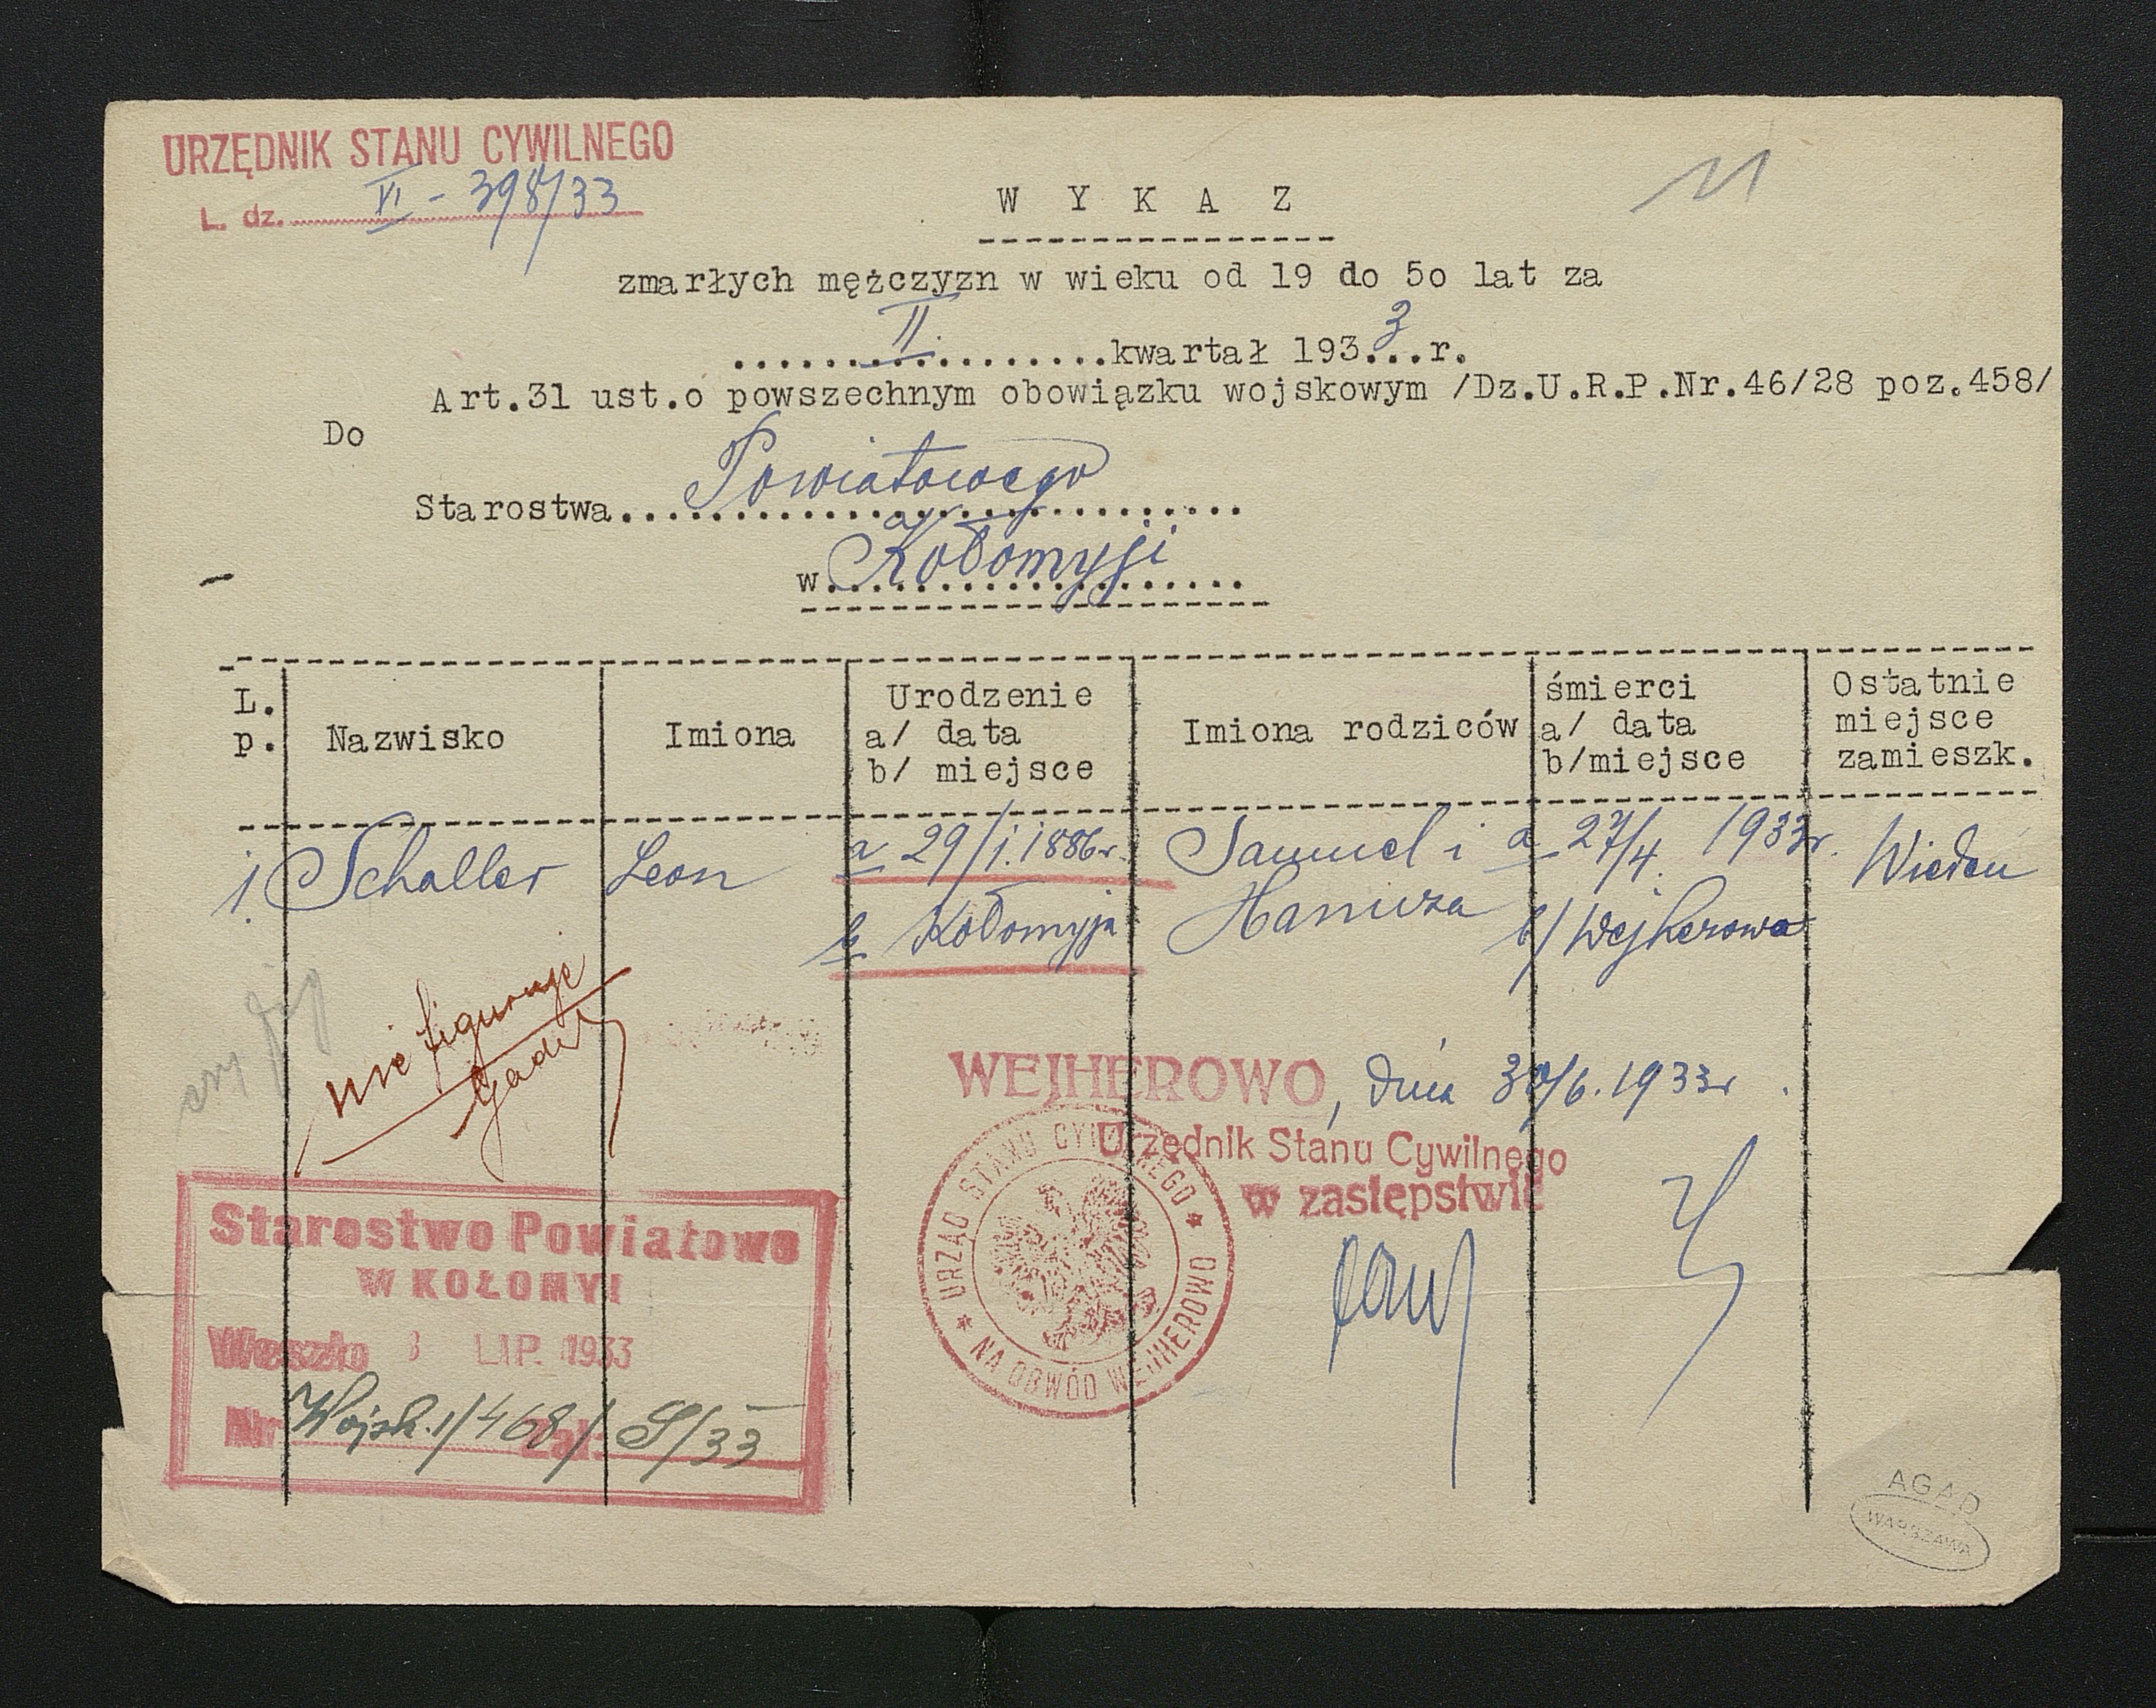 URZĘDNIK STANU CYWILNEGO
L. dz. VI - 398/33
11
W Y K A Z
zmarłych mężczyzn w wieku od 19 do 5o lat za
........II........kwartał 193.3..r.
Art.31 ust.o powszechnym obowiązku wojskowym /Dz.U.R.P.Nr.46/28 poz.458/
Do
Starostwa....Powiatowego....
w....Kołomyji....
L. p.
Nazwisko
Imiona
Urodzenie
a/ data
b/ miejsce
Imiona rodziców
śmierci
a/ data
b/miejsce
Ostatnie
miejsce
zamieszk.
1. Schaller Leon a 29/1.1886r. Samuel i a 27/4. 1933r. Wiedeń
b Kołomyja b/ Wejherowo
nie figuruje
WEJHEROWO, dnia 30/6.1933r.
Urzędnik Stanu Cywilnego
w zastępstwie
URZĄD STANU CYWILNEGO
NA OBWÓD WEJHEROWO
Starostwo Powiatowe
W KOŁOMYI
Weszło 3 LIP. 1933
Nr Wojsk.1/468/ Zał. S/33
AGAD
WARSZAWA